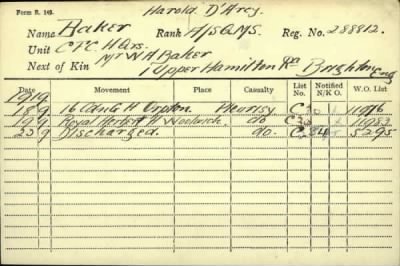 Form B. 149.
Harold D'Arcy.
Name Baker Rank A/SQMS Reg. No. 288812.
Unit CPC Hdrs.
Next of Kin Mr W H Baker
1 Upper Hamilton Rd Brighton Eng
Date Movement Place Casualty List No. Notified N/K O. W.O. List
1919
18 9 16 Cas H Upton Pleurisy C 11976
19 9 Royal Herbert H Woolwich do C 11983
23 9 Discharged. do. C 34 5295